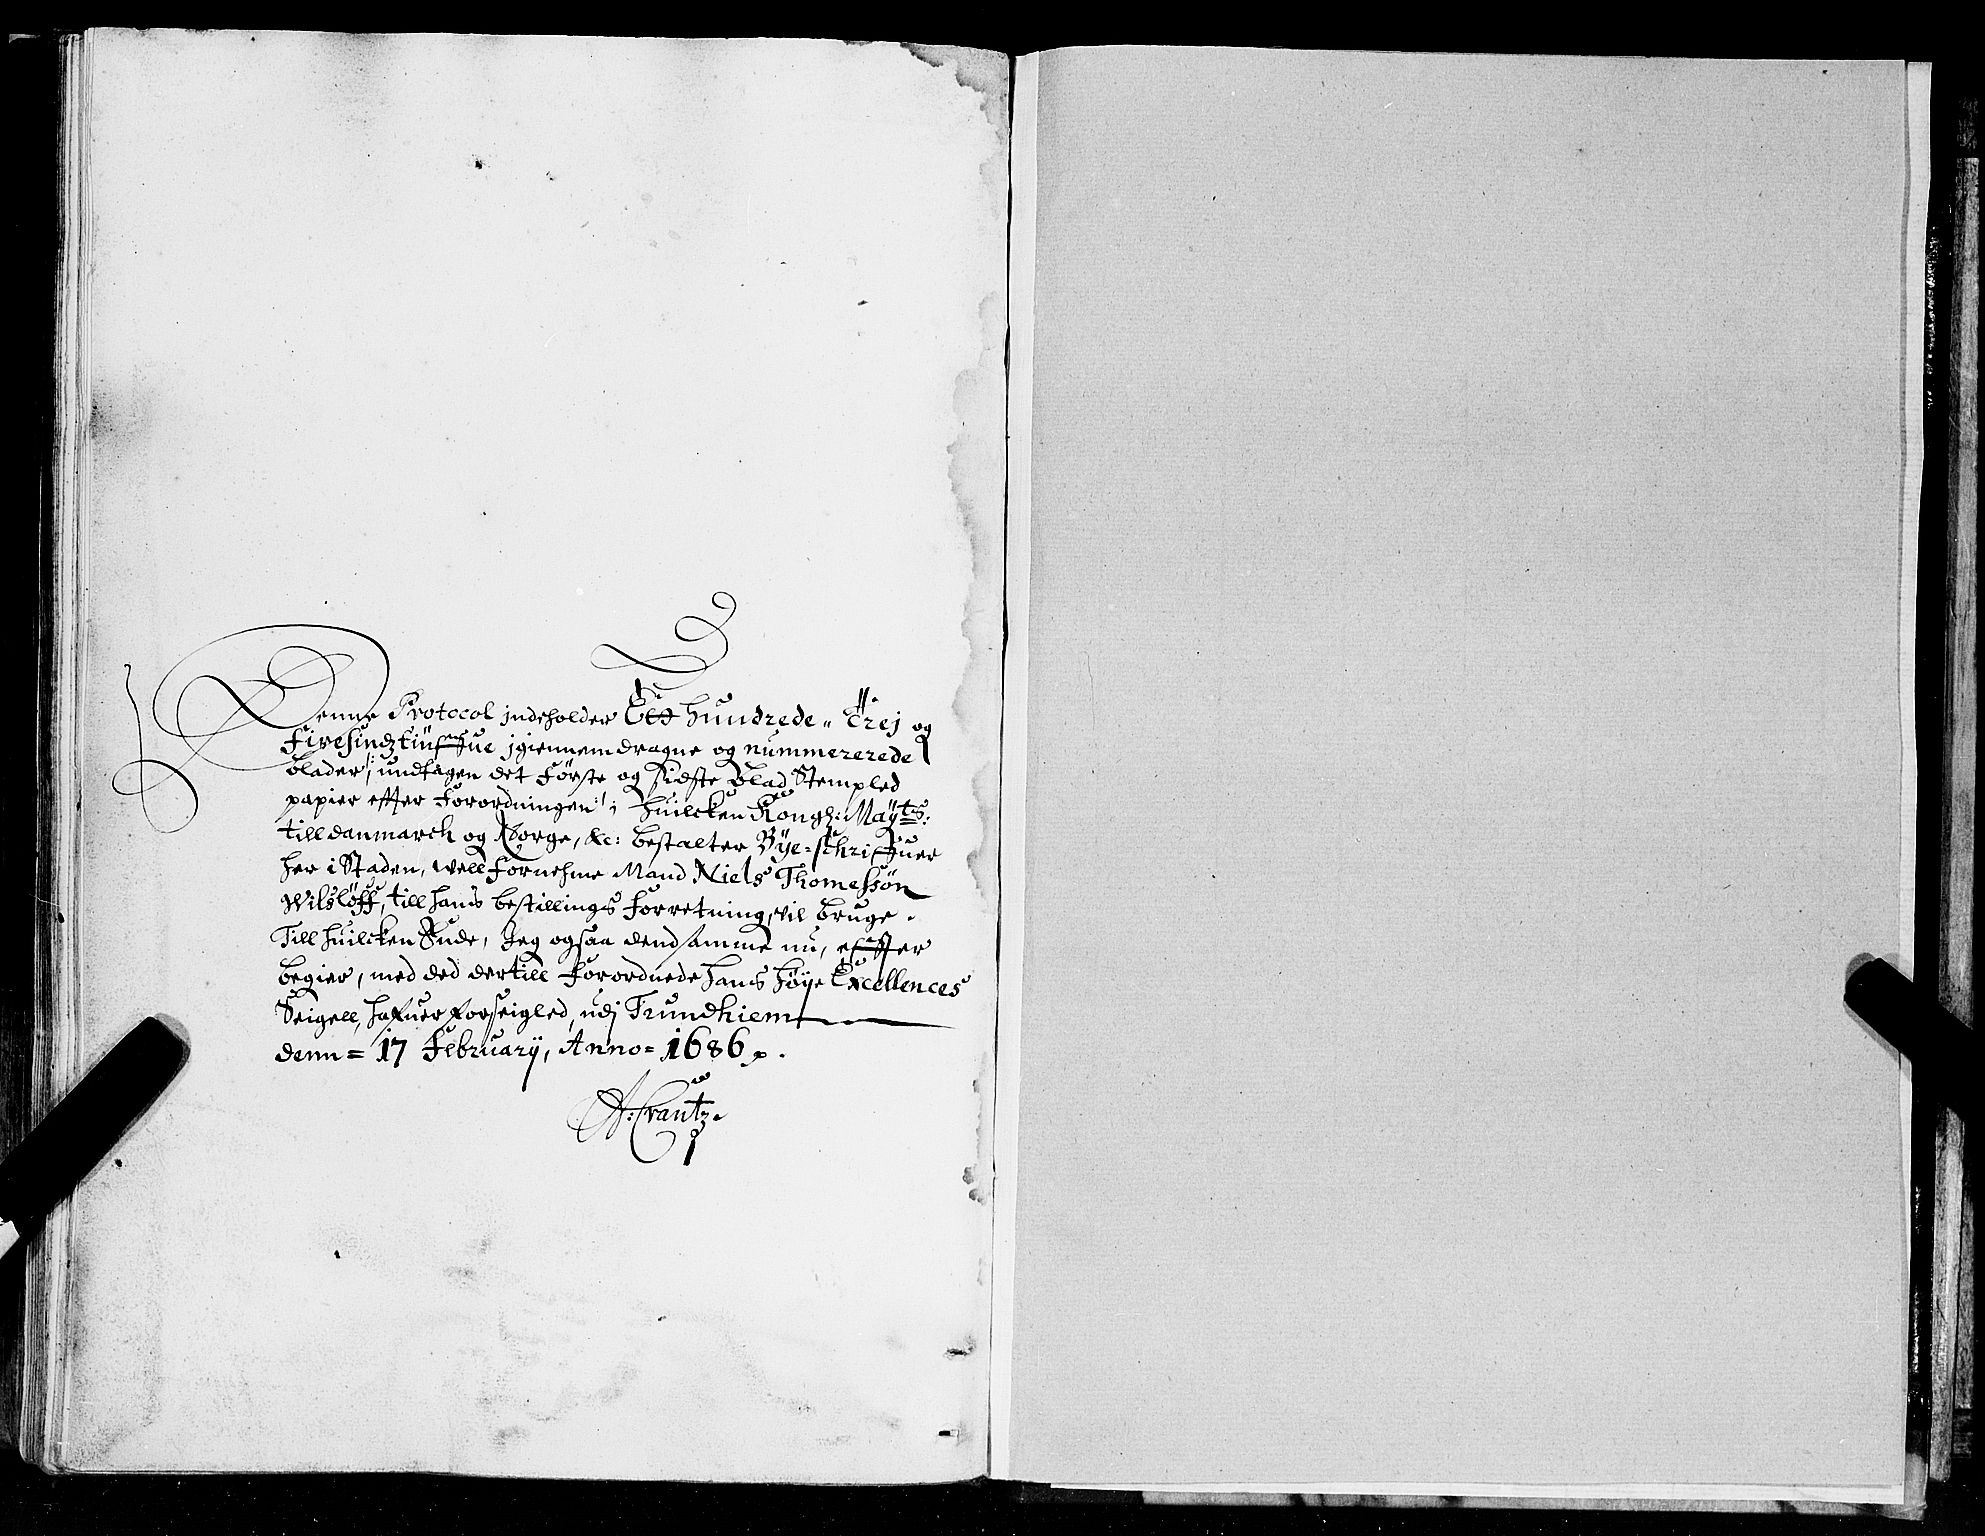 Denne Protocol indeholder Ett hundrede, Trej og
Firesindztiufue igiennemdragne og nummererede
blader /: undtagen det Første og sidste blad Stempled
papier effter Forordningen :/ huilcken Kongl: Mayts:
till danmarck og Norge, &c: bestalter Bye=schrifuer
her i Staden, well Fornehme Mand Niels Thomessøn
Wilsløff, till hans bestillings Forretning, vil bruge.
Till huilcken Ende, Jeg ogsaa dend samme nu, effter
begier, med ded dertill Forordnede hans høye Excellences
Seigell, hafuer forseigled, udj Trundhiem
denn = 17 February, Anno = 1686
A: Crantz.